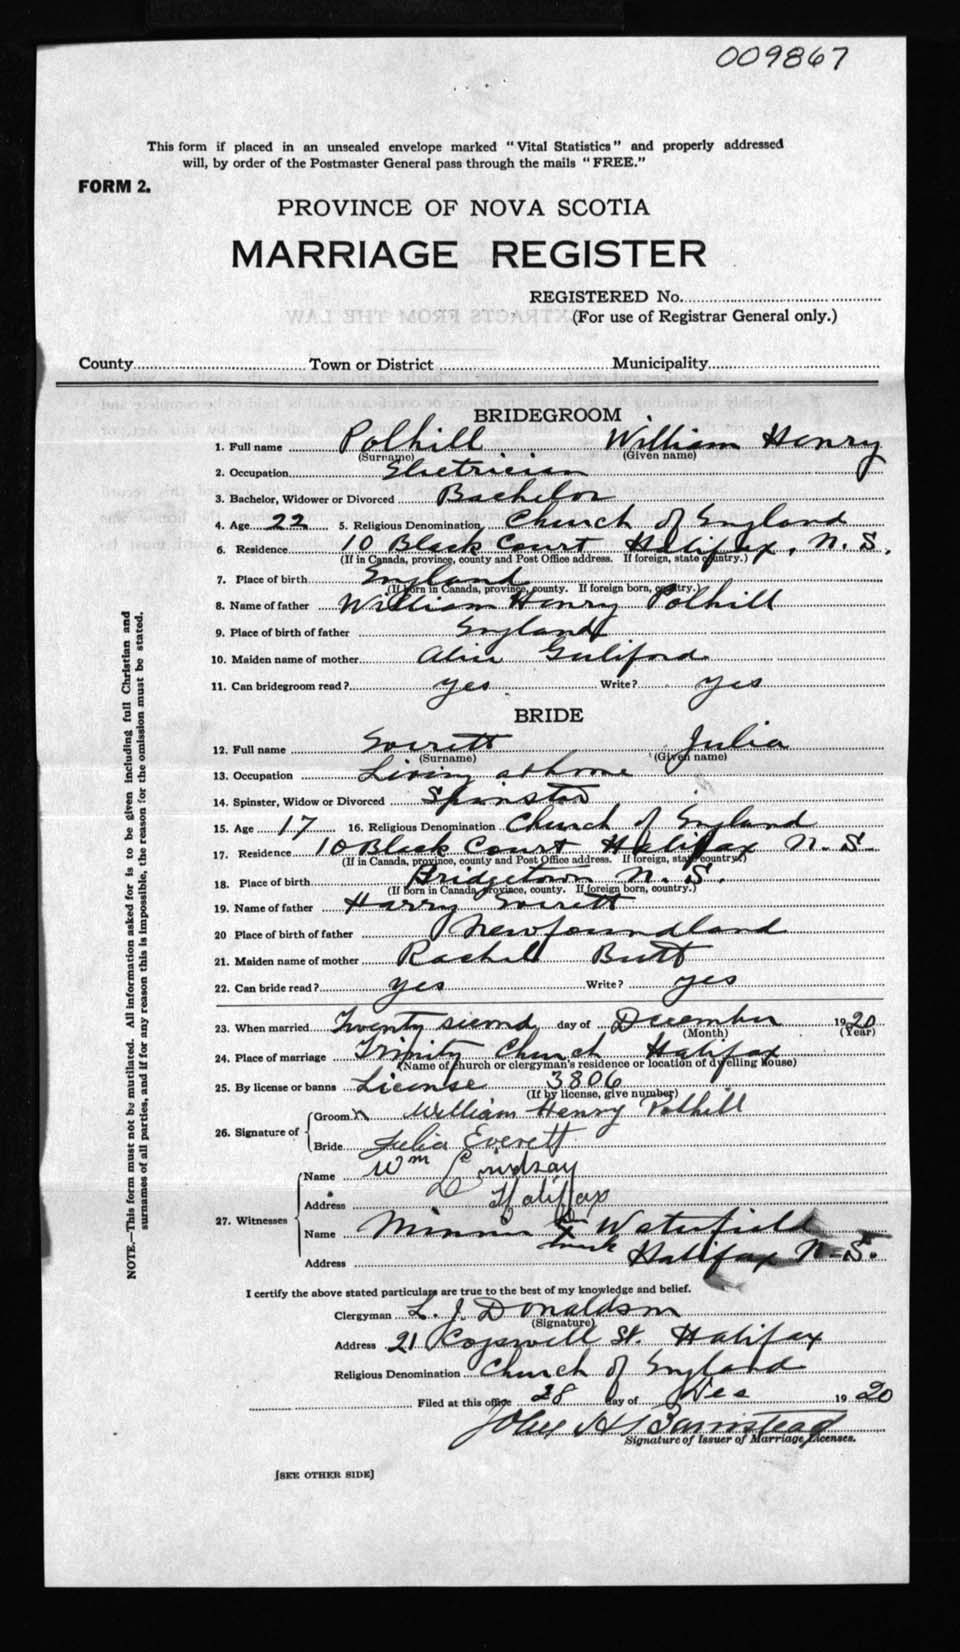 009867
This form if placed in an unsealed envelope marked "Vital Statistics" and properly addressed
will, by order of the Postmaster General pass through the mails "FREE."
FORM 2.
PROVINCE OF NOVA SCOTIA
MARRIAGE REGISTER
REGISTERED No.
(For use of Registrar General only.)
County Town or District Municipality
BRIDEGROOM
1. Full name Polhill William Henry
(Surname) (Given name)
2. Occupation Electrician
3. Bachelor, Widower or Divorced Bachelor
4. Age 22 5. Religious Denomination Church of England
6. Residence 10 Black Court Halifax, N. S.
(If in Canada, province, county and Post Office address. If foreign, state country.)
7. Place of birth England
(If born in Canada, province, county. If foreign born, country.)
8. Name of father William Henry Polhill
9. Place of birth of father England
10. Maiden name of mother Alice Guliford
11. Can bridegroom read? yes Write? yes
BRIDE
12. Full name Everett Julia
(Surname) (Given name)
13. Occupation Living at home
14. Spinster, Widow or Divorced Spinster
15. Age 17 16. Religious Denomination Church of England
17. Residence 10 Black Court Halifax N. S.
(If in Canada, province, county and Post Office address. If foreign, state country.)
18. Place of birth Bridgetown N. S.
(If born in Canada, province, county. If foreign born, country.)
19. Name of father Harry Everett
20 Place of birth of father Newfoundland
21. Maiden name of mother Rachel Butt
22. Can bride read? yes Write? yes
23. When married Twenty second day of December 1920
(Month) (Year)
24. Place of marriage Trinity Church Halifax
(Name of church or clergyman's residence or location of dwelling house)
25. By license or banns License 3806
(If by license, give number)
26. Signature of Groom William Henry Polhill
Bride Julia Everett
27. Witnesses Name Wm Lindsay
Address Halifax
Name Minnie Waterfield
Address Halifax N-S.
I certify the above stated particulars are true to the best of my knowledge and belief.
Clergyman L. J. Donaldson
(Signature)
Address 21 Cogswell St. Halifax
Religious Denomination Church of England
Filed at this office 28 day of Dec 1920
John H Barnstead
Signature of Issuer of Marriage Licenses.
[SEE OTHER SIDE]
NOTE.—This form must not be mutilated. All information asked for is to be given including full Christian and
surnames of all parties, and if for any reason this is impossible, the reason for the omission must be stated.